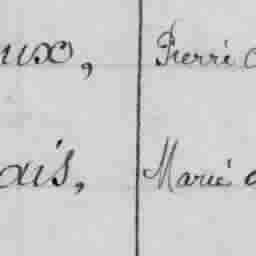 aux, Pierre
ais, Marie